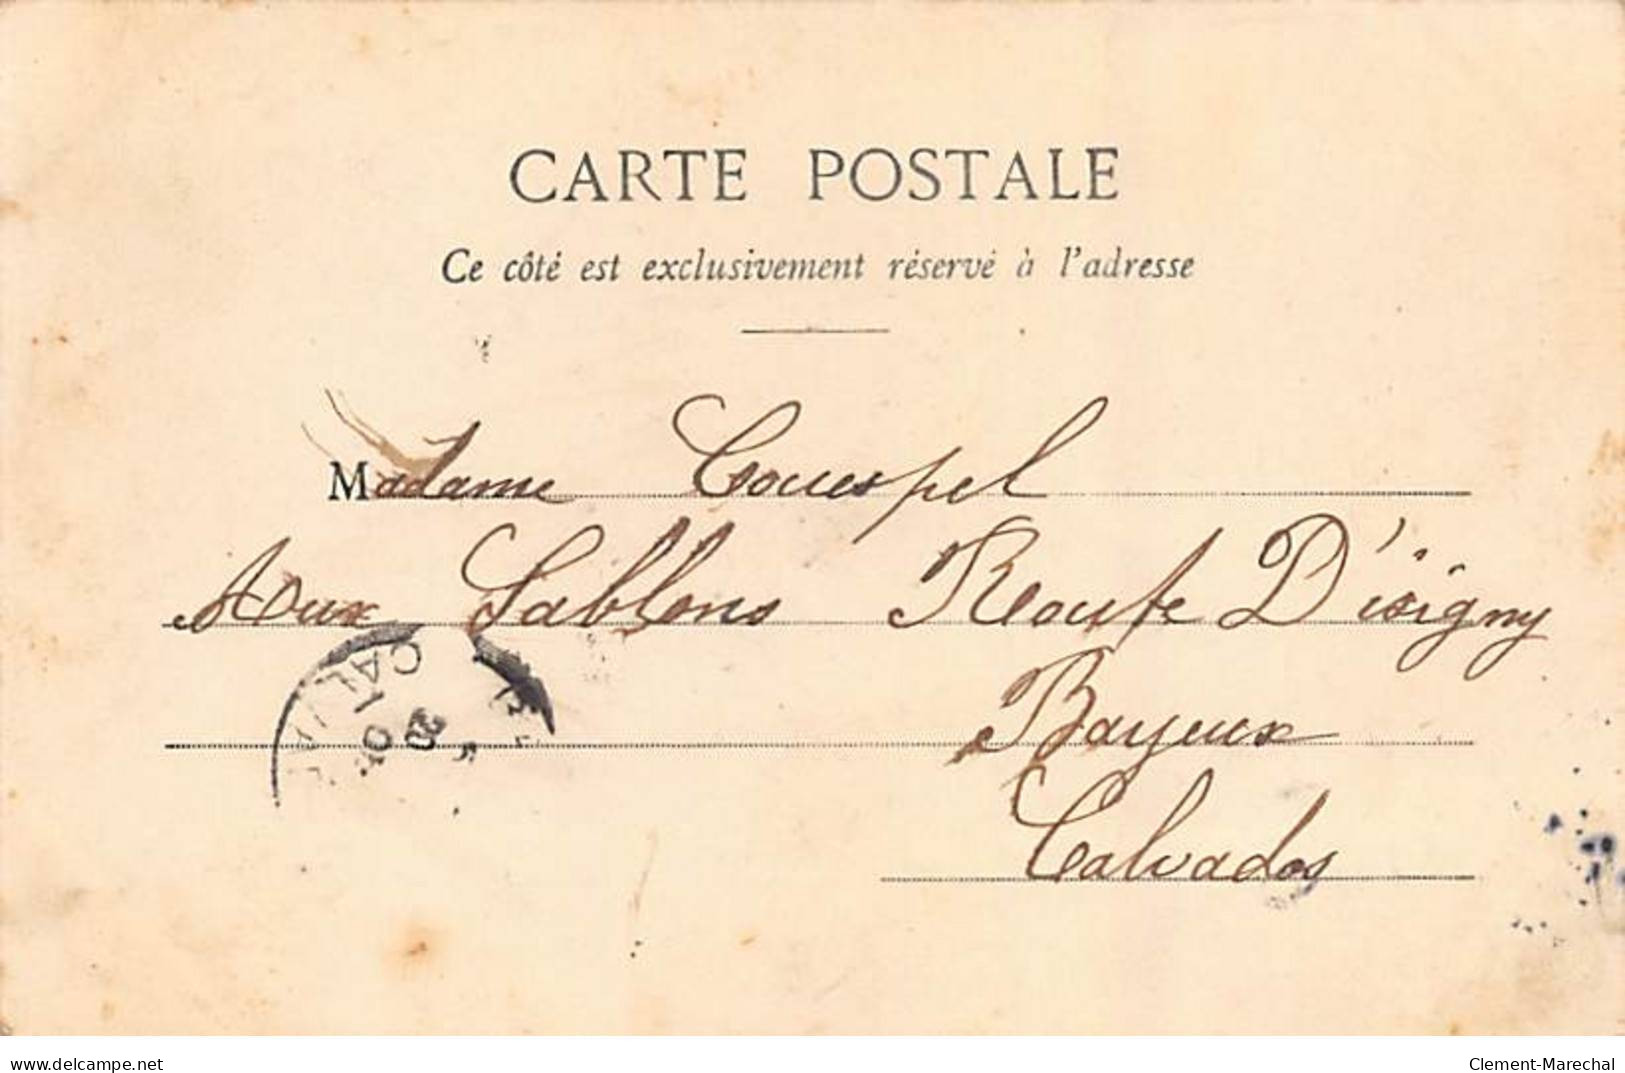 CARTE POSTALE
Ce côté est exclusivement réservé à l'adresse
Madame Couespel
Aux Sablons Route D'isigny
Bayeux
Calvados
delcampe.net
Clement-Marechal